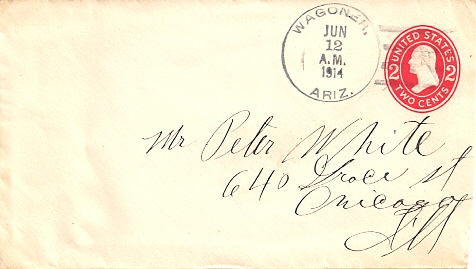 WAGONER,
JUN
12
A.M.
1914
ARIZ.
UNITED STATES
2 2
TWO CENTS
Mr Peter White
640 Grace st
Chicago
Ill